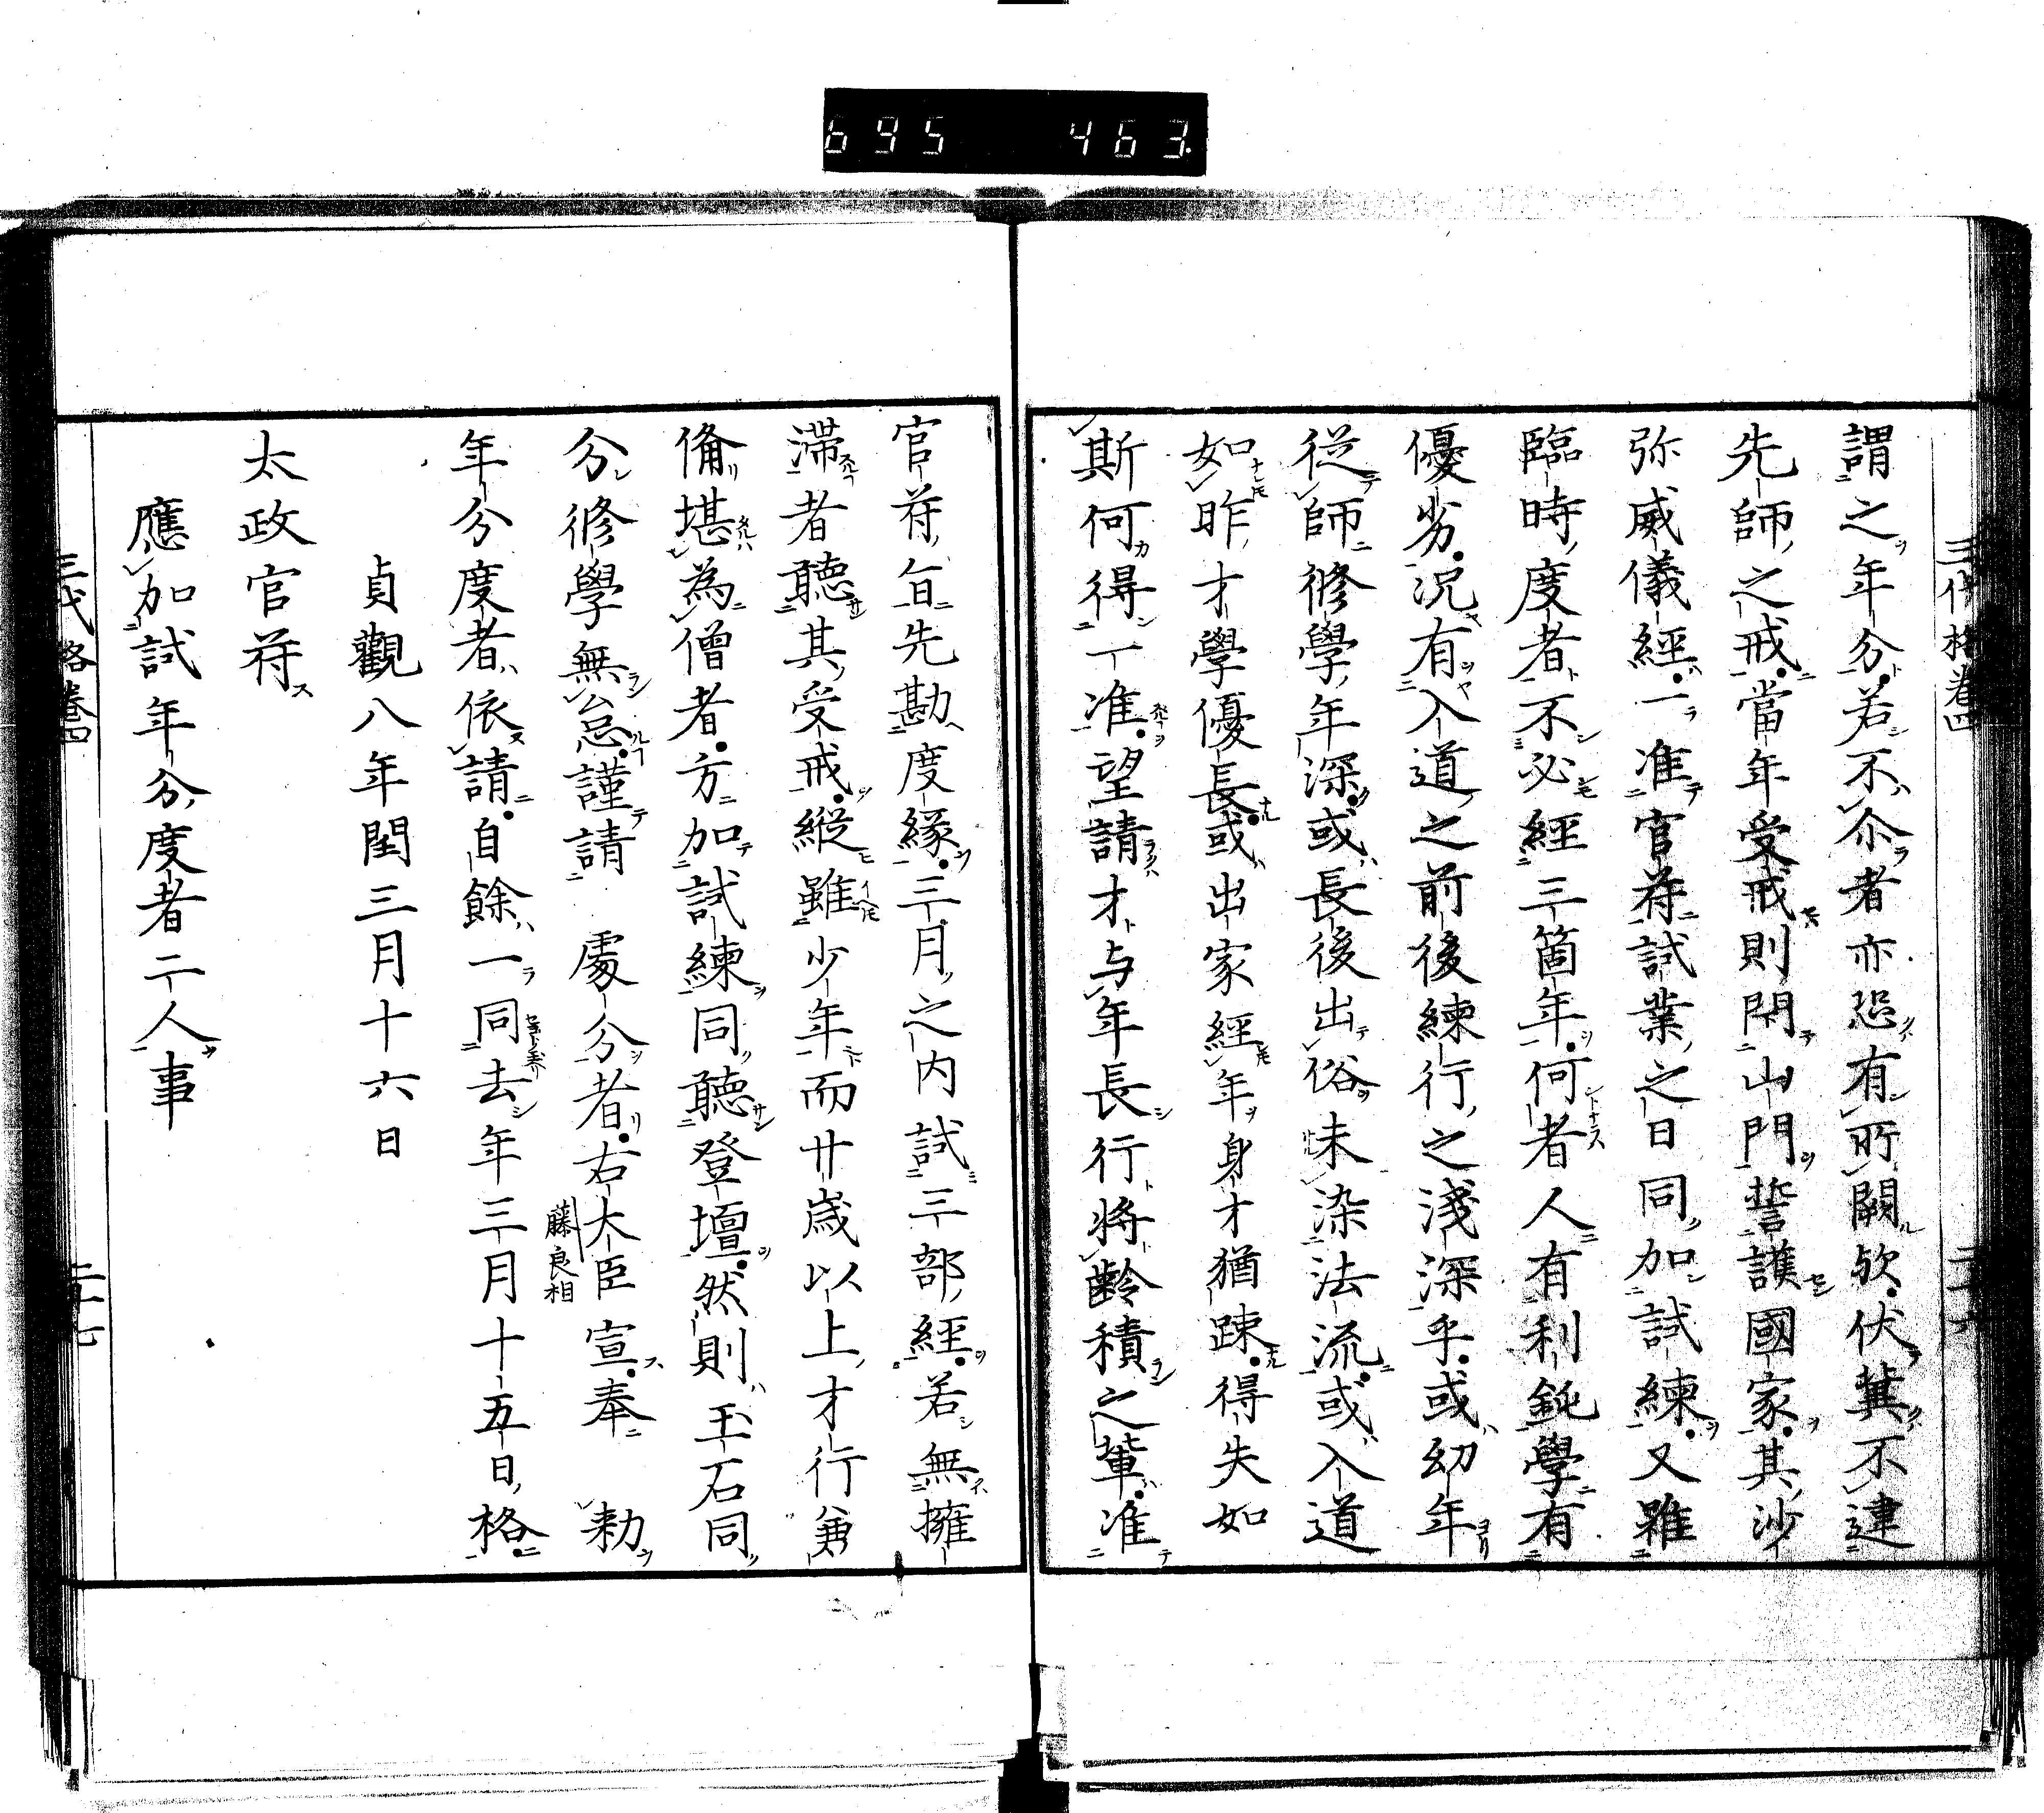 695 463
三代格卷四 二十六
謂之年分若不尒者亦恐有所闕欤伏冀不違
先師之戒當年受戒則閇山門誓護國家其沙
弥威儀經一准官符試業之日同加試練又雖
臨時度者不必經三箇年何者人有利鈍學有
優劣况有入道之前後練行之淺深乎或幼年
從師修學年深或長後出俗未染法流或入道
如昨才學優長或出家經年身才猶踈得失如
斯何得一准望請才与年長行將齡積之輩准
官符旨先勘度緣三月之内試三部經若無擁
滞者聽其受戒縱雖少年而廿歲以上才行兼
備堪為僧者方加試練同聽登壇然則玉石同
分修學無怠謹請 處分者右大臣宣奉 勅
藤良相
年分度者依請自餘一同去年三月十五日格
貞觀八年閏三月十六日
太政官符
應加試年分度者二人事
三代格卷四 二十七